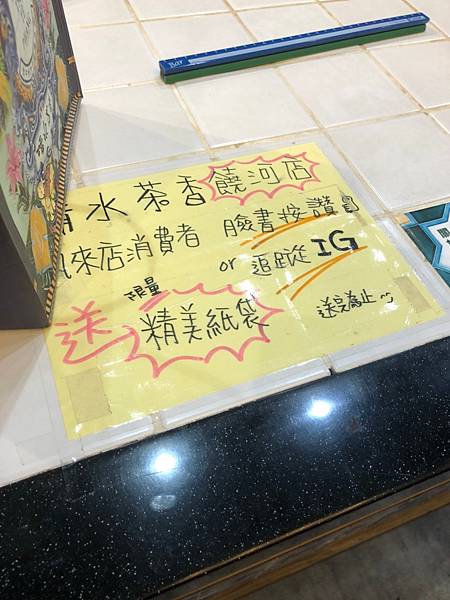 水茶香饒河店
來店消費者 臉書按讚
or 追蹤 IG
限量
送 精美紙袋 送完為止~